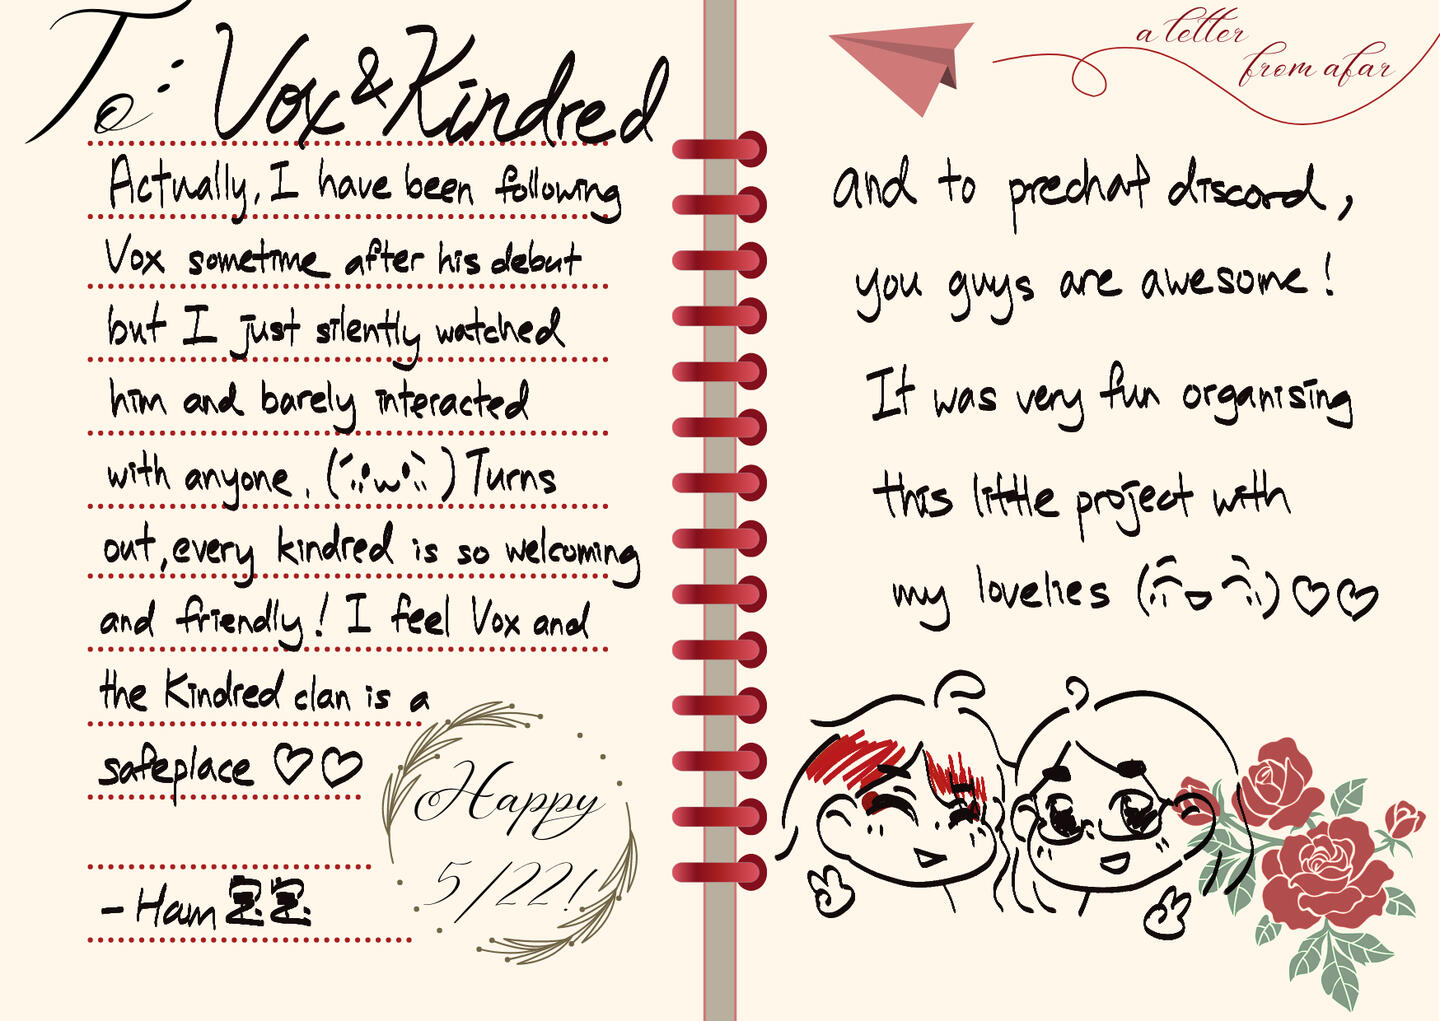 To: Vox & Kindred
Actually, I have been following
Vox sometime after his debut
but I just silently watched
him and barely interacted
with anyone. (´;ω;`) Turns
out, every kindred is so welcoming
and friendly! I feel Vox and
the Kindred clan is a
safeplace ♡♡
- Ham
Happy
5/22!
a letter
from afar
and to prechat discord,
you guys are awesome!
It was very fun organising
this little project with
my lovelies ♡♡